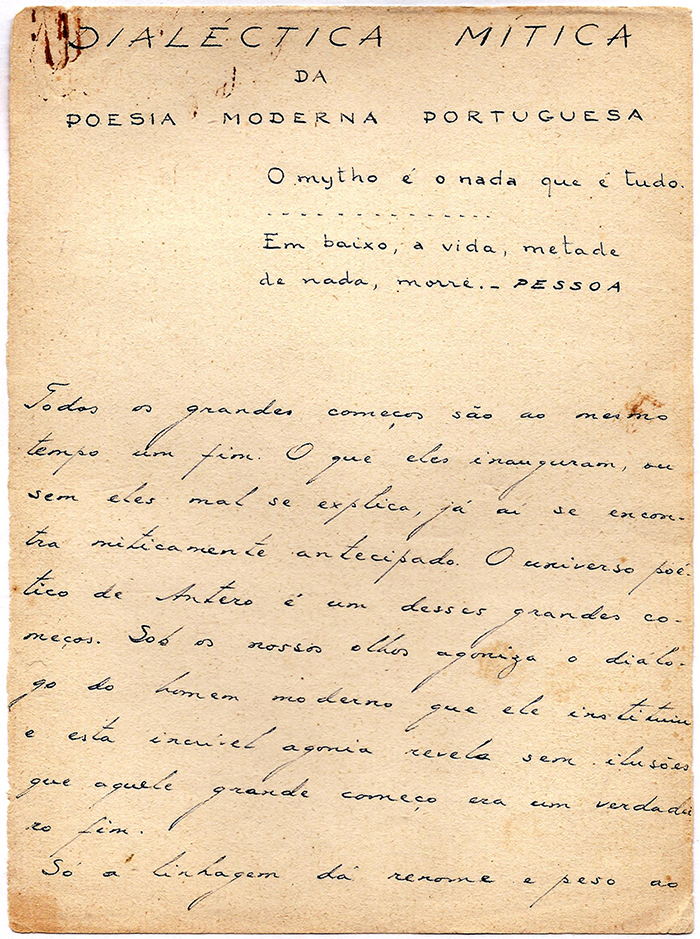 DIALÉCTICA MÍTICA
DA
POESIA MODERNA PORTUGUESA
O mytho é o nada que é tudo.
. . . . . . . . . . . . . . .
Em baixo, a vida, metade
de nada, morre. _ PESSOA
Todos os grandes começos são ao mesmo
tempo um fim. O que eles inauguram, ou
sem eles mal se explica, já aí se encon-
tra miticamente antecipado. O universo poé-
tico de Antero é um desses grandes co-
meços. Sob os nossos olhos agoniza o diálo-
go do homem moderno que ele instituiu
e esta incrível agonia revela sem ilusões
que aquele grande começo era um verdadei
ro fim.
Só a linhagem dá renome e peso ao